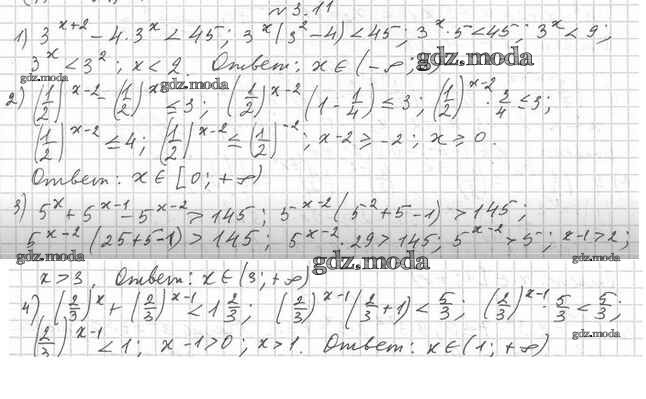 №3.11
1) 3^{x+2} - 4·3^x < 45; 3^x(3^2-4) < 45; 3^x·5 < 45; 3^x < 9;
3^x < 3^2; x < 2. Ответ: x ∈ (-∞;
gdz.moda
gdz.moda
gdz.moda
2) (1/2)^{x-2} - (1/2)^x ≤ 3; (1/2)^{x-2}(1-1/4) ≤ 3; (1/2)^{x-2}·3/4 ≤ 3;
(1/2)^{x-2} ≤ 4; (1/2)^{x-2} ≤ (1/2)^{-2}; x-2 ≥ -2; x ≥ 0.
gdz.moda
Ответ: x ∈ [0; +∞)
gdz.moda
3) 5^x + 5^{x-1} - 5^{x-2} > 145; 5^{x-2}(5^2+5-1) > 145;
5^{x-2}(25+5-1) > 145; 5^{x-2}·29 > 145; 5^{x-2} > 5; x-1 > 2;
gdz.moda
gdz.moda
gdz.moda
x > 3. Ответ: x ∈ (3; +∞)
4) (2/3)^x + (2/3)^{x-1} < 1 2/3; (2/3)^{x-1}(2/3+1) < 5/3; (2/3)^{x-1}·5/3 < 5/3;
gdz.moda
(2/3)^{x-1} < 1; x-1 > 0; x > 1. Ответ: x ∈ (1; +∞)
gdz.moda
gdz.moda